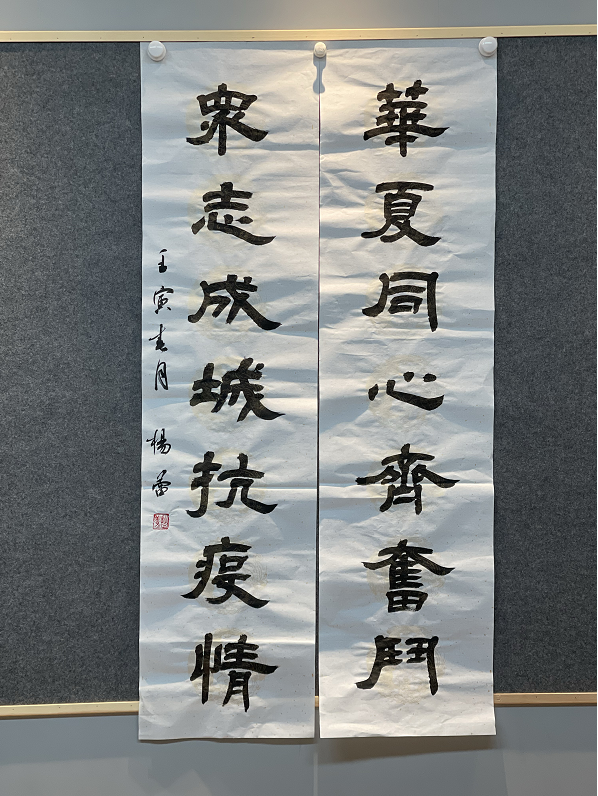 華夏同心齊奮鬥
眾志成城抗疫情
壬寅春月 楊蕾